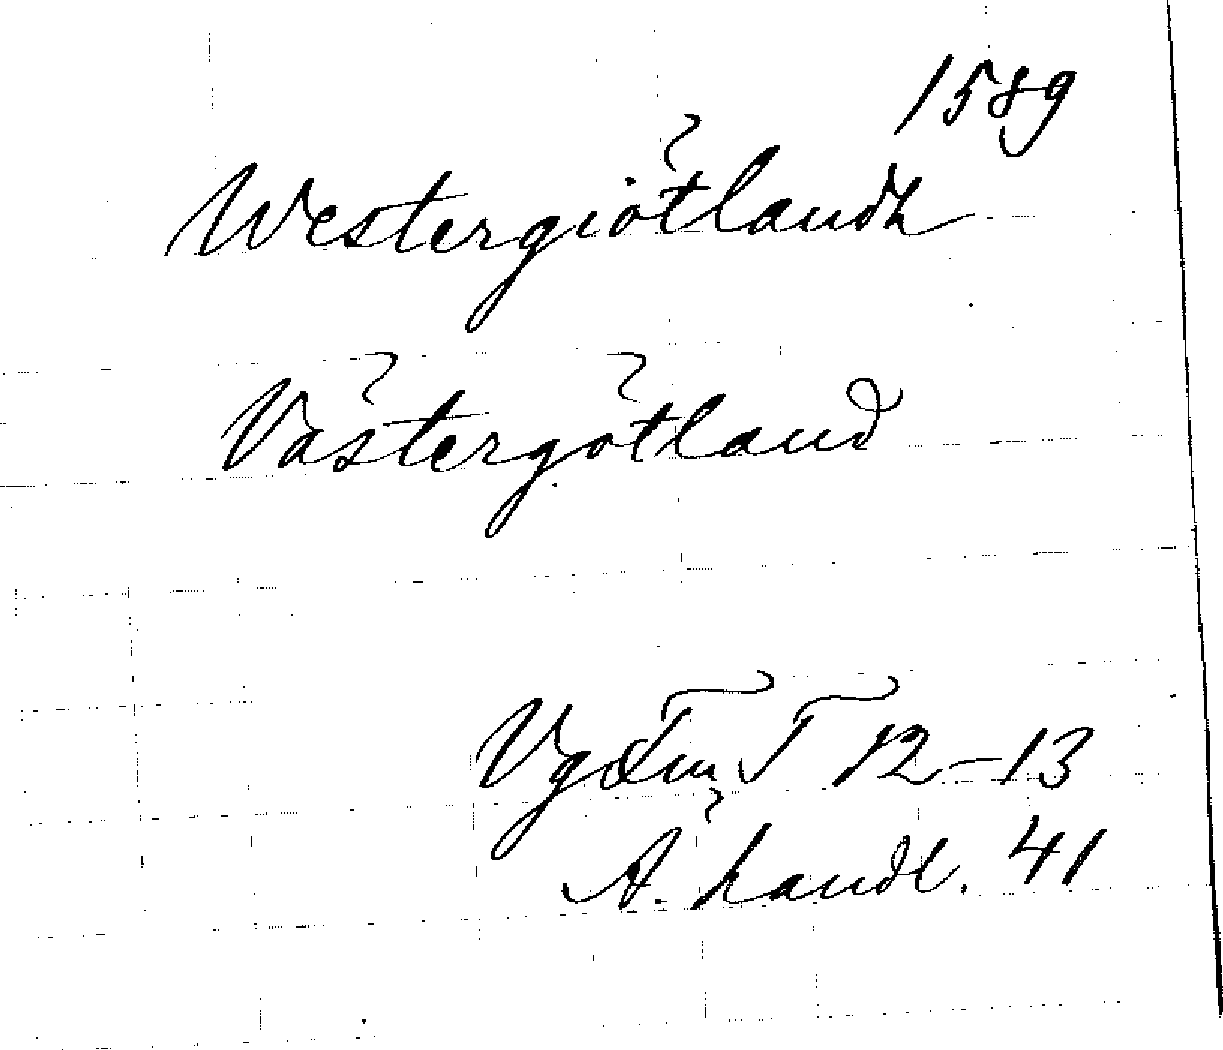 1589
Westergiötlandh
Västergötland
Vg Fm T 12-13
Ä. handl. 41